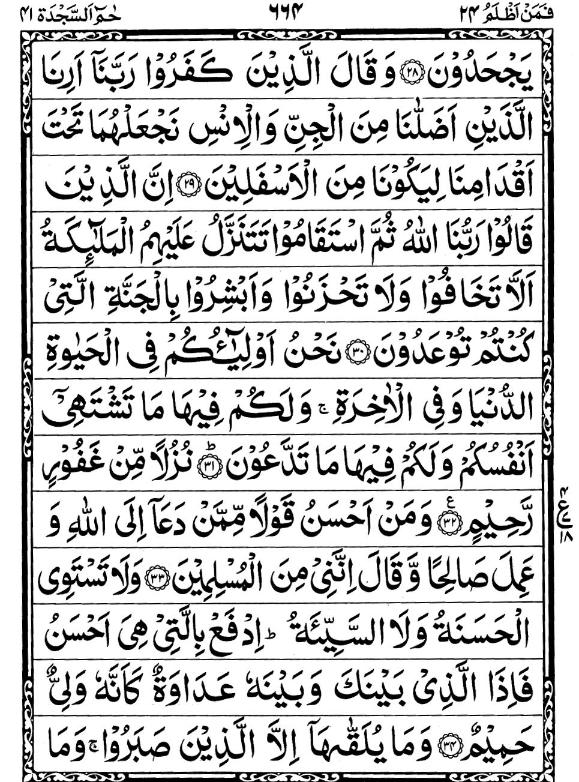 فَمَنْ اَظْلَمُ ٢٤ ٦٦٤ حٰمٓ السَّجْدَة ٤١
يَجْحَدُوْنَ ﴿۲۸﴾ وَ قَالَ الَّذِيْنَ كَفَرُوْا رَبَّنَاۤ اَرِنَا
الَّذَيْنِ اَضَلّٰنَا مِنَ الْجِنِّ وَالْاِنْسِ نَجْعَلْهُمَا تَحْتَ
اَقْدَامِنَا لِيَكُوْنَا مِنَ الْاَسْفَلِيْنَ ﴿۲۹﴾ اِنَّ الَّذِيْنَ
قَالُوْا رَبُّنَا اللّٰهُ ثُمَّ اسْتَقَامُوْا تَتَنَزَّلُ عَلَيْهِمُ الْمَلٰٓئِكَةُ
اَلَّا تَخَافُوْا وَلَا تَحْزَنُوْا وَاَبْشِرُوْا بِالْجَنَّةِ الَّتِيْ
كُنْتُمْ تُوْعَدُوْنَ ﴿۳۰﴾ نَحْنُ اَوْلِيٰٓؤُكُمْ فِى الْحَيٰوةِ
الدُّنْيَا وَفِى الْاٰخِرَةِ ۚ وَلَكُمْ فِيْهَا مَا تَشْتَهِيْۤ
اَنْفُسُكُمْ وَلَكُمْ فِيْهَا مَا تَدَّعُوْنَ ﴿۳۱﴾ؕ نُزُلًا مِّنْ غَفُوْرٍ
رَّحِيْمٍ ﴿۳۲﴾ ع وَمَنْ اَحْسَنُ قَوْلًا مِّمَّنْ دَعَاۤ اِلَى اللّٰهِ وَ
٤ ع ١٨
عَمِلَ صَالِحًا وَّ قَالَ اِنَّنِيْ مِنَ الْمُسْلِمِيْنَ ﴿۳۳﴾ وَلَا تَسْتَوِى
الْحَسَنَةُ وَلَا السَّيِّئَةُ ؕ اِدْفَعْ بِالَّتِيْ هِىَ اَحْسَنُ
فَاِذَا الَّذِيْ بَيْنَكَ وَبَيْنَهٗ عَدَاوَةٌ كَاَنَّهٗ وَلِىٌّ
حَمِيْمٌ ﴿۳۴﴾ وَمَا يُلَقّٰىهَاۤ اِلَّا الَّذِيْنَ صَبَرُوْا ۚ وَمَا